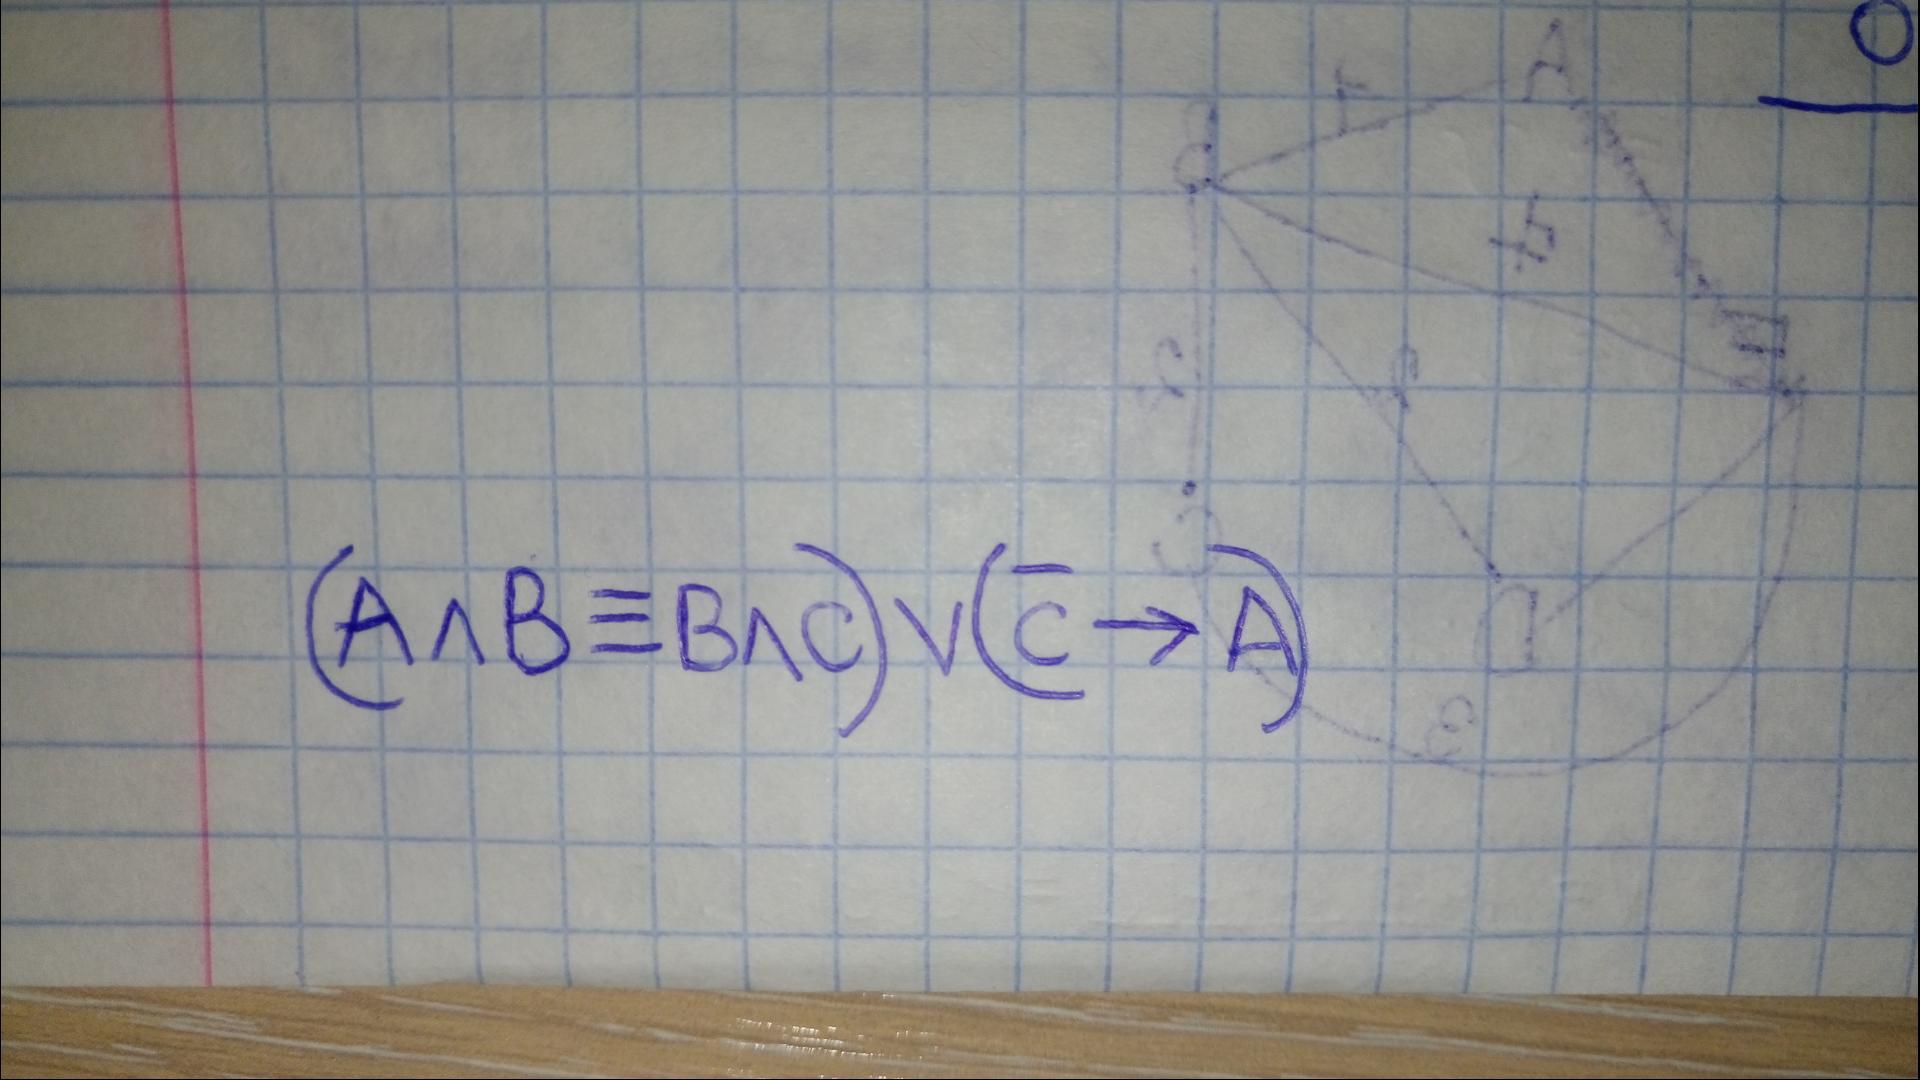 O
(A∧B≡B∧C)∨(C̄→A)